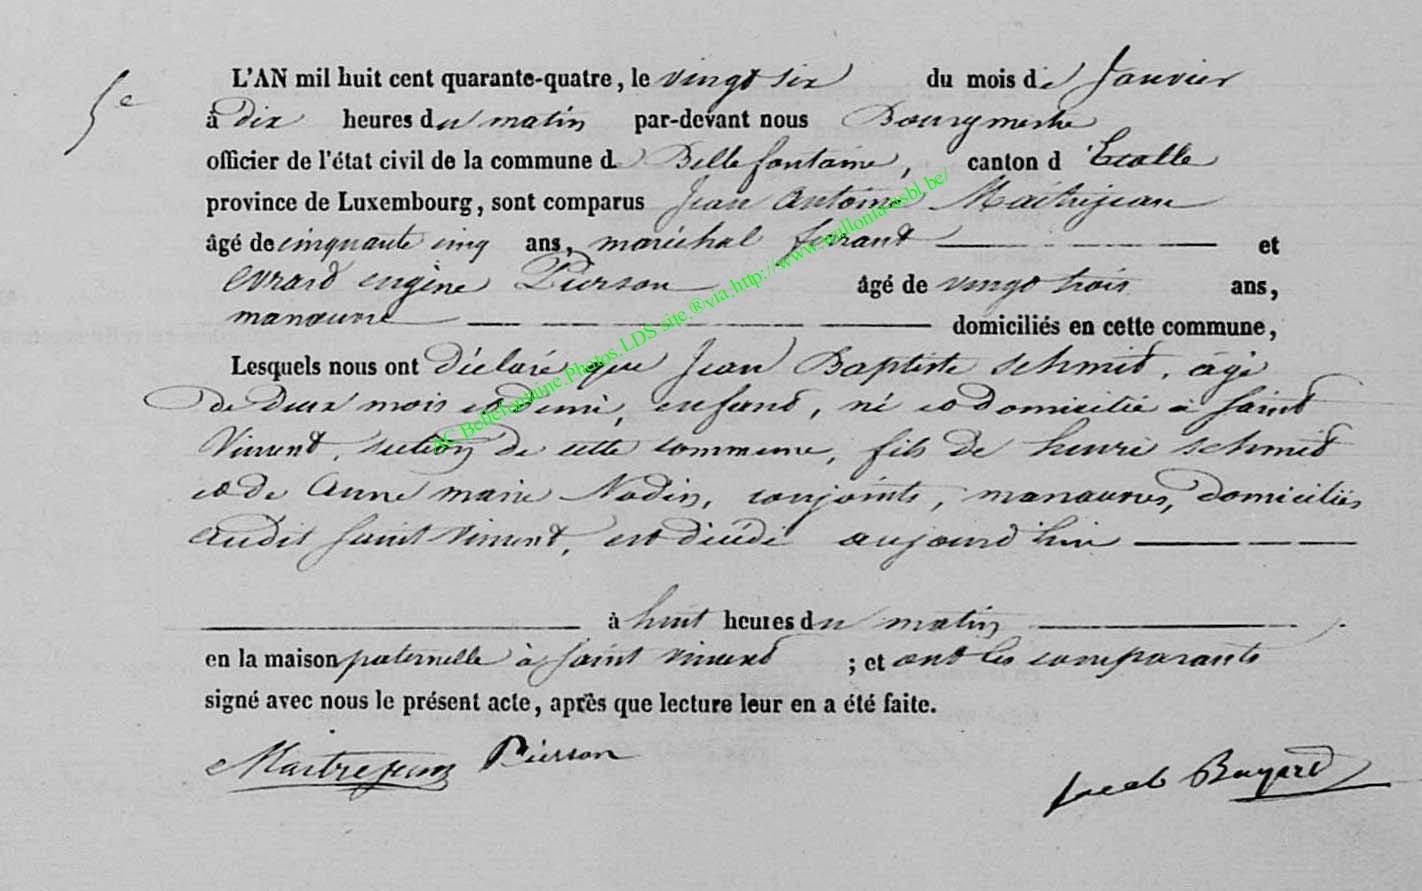 5e
L'AN mil huit cent quarante-quatre, le vingt six du mois de Janvier
à dix heures du matin par-devant nous Bourgmestre
officier de l'état civil de la commune de Bellefontaine, canton d'Etalle
province de Luxembourg, sont comparus Jean Antoine Maitrejean
âgé de cinquante cinq ans, maréchal ferrant et
Evrard eugène Pierson âgé de vingt trois ans,
manœuvre domiciliés en cette commune,
Lesquels nous ont déclaré que Jean Baptiste Schmid, agé
de deux mois et demi, enfant, né et domicilié à Saint
Vincent, section de cette commune, fils de henri Schmid
et de Anne marie Nodin, conjoints, manœuvres, domiciliés
audit Saint Vincent, est décédé aujourd'hui
à huit heures du matin
en la maison paternelle à Saint Vincent ; et ont les comparants
signé avec nous le présent acte, après que lecture leur en a été faite.
Maitrejean Pierson
Jacob Bayard
AC.Bellefontaine.Photos.LDS site.®via.http://www.wallonia-asbl.be/